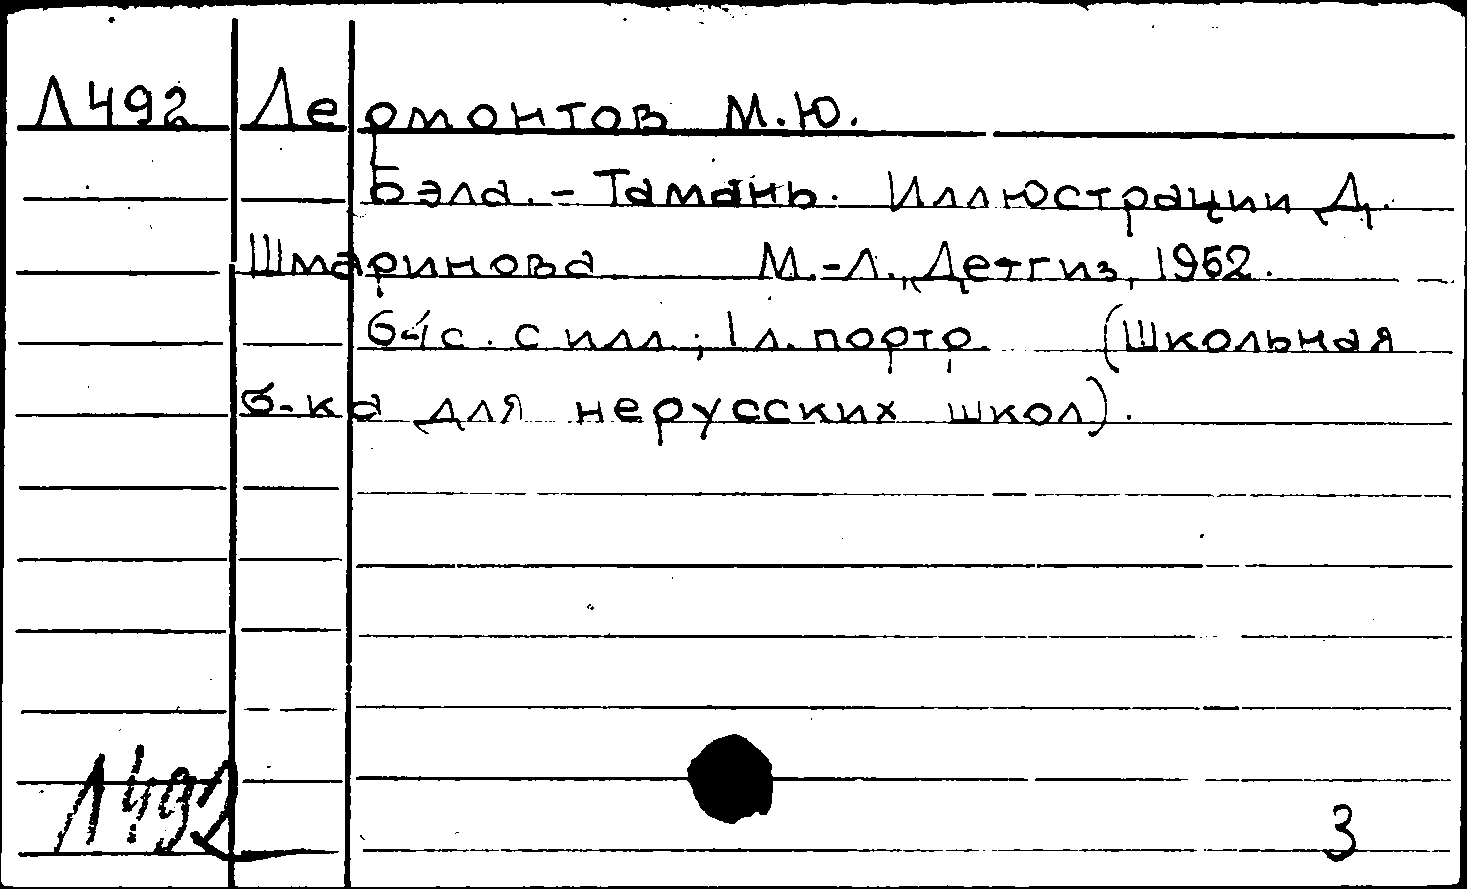 Л492 Лермонтов М.Ю.
Бэла. – Тамань. Иллюстрации Д.
Шмаринова М.-Л., Детгиз, 1952.
64с. с илл.; 1 л. портр. (Школьная
б-ка для нерусских школ).
Л492
3